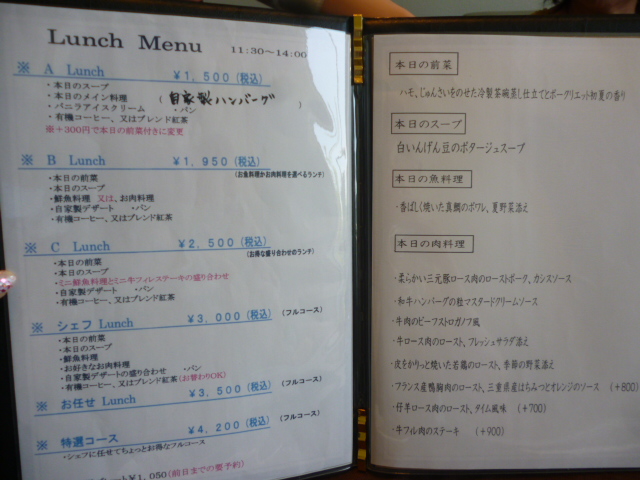 Lunch Menu 11:30～14:00
※ A Lunch ￥1,500(税込)
・本日のスープ
・本日のメイン料理 ( 自家製ハンバーグ )
・バニラアイスクリーム ・パン
・有機コーヒー、又はブレンド紅茶
※＋300円で本日の前菜付きに変更
※ B Lunch ￥1,950(税込)
(お魚料理かお肉料理を選べるランチ)
・本日の前菜
・本日のスープ
・鮮魚料理 又は、お肉料理
・自家製デザート ・パン
・有機コーヒー、又はブレンド紅茶
※ C Lunch ￥2,500(税込)
(お得な盛り合わせのランチ)
・本日の前菜
・本日のスープ
・ミニ鮮魚料理とミニ牛フィレステーキの盛り合わせ
・自家製デザート ・パン
・有機コーヒー、又はブレンド紅茶
※ シェフ Lunch ￥3,000(税込) (フルコース)
・本日の前菜
・本日のスープ
・鮮魚料理
・お好きなお肉料理 ・パン
・自家製デザートの盛り合わせ
・有機コーヒー、又はブレンド紅茶(お替わりOK)
※ お任せ Lunch ￥3,500(税込) (フルコース)
※ 特選コース ￥4,200(税込) (フルコース)
・シェフに任せてちょっとお得なフルコース
￥1,050(前日までの要予約)
本日の前菜
ハモ、じゅんさいをのせた冷製茶碗蒸し仕立てとポークリエット初夏の香り
本日のスープ
白いんげん豆のポタージュスープ
本日の魚料理
・香ばしく焼いた真鯛のポワレ、夏野菜添え
本日の肉料理
・柔らかい三元豚ロース肉のローストポーク、カシスソース
・和牛ハンバーグの粒マスタードクリームソース
・牛肉のビーフストロガノフ風
・牛ロース肉のロースト、フレッシュサラダ添え
・皮をかりっと焼いた若鶏のロースト、季節の野菜添え
・フランス産鴨胸肉のロースト、三重県産はちみつとオレンジのソース (＋800)
・仔羊ロース肉のロースト、タイム風味 (＋700)
・牛フィレ肉のステーキ (＋900)